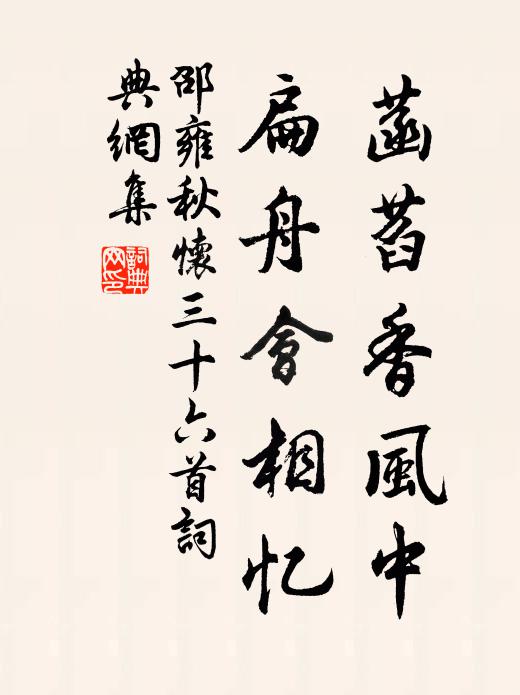 菡萏香風中
扁舟會相忆
邵雍秋懷三十六首詞
典網集
詞典
网印